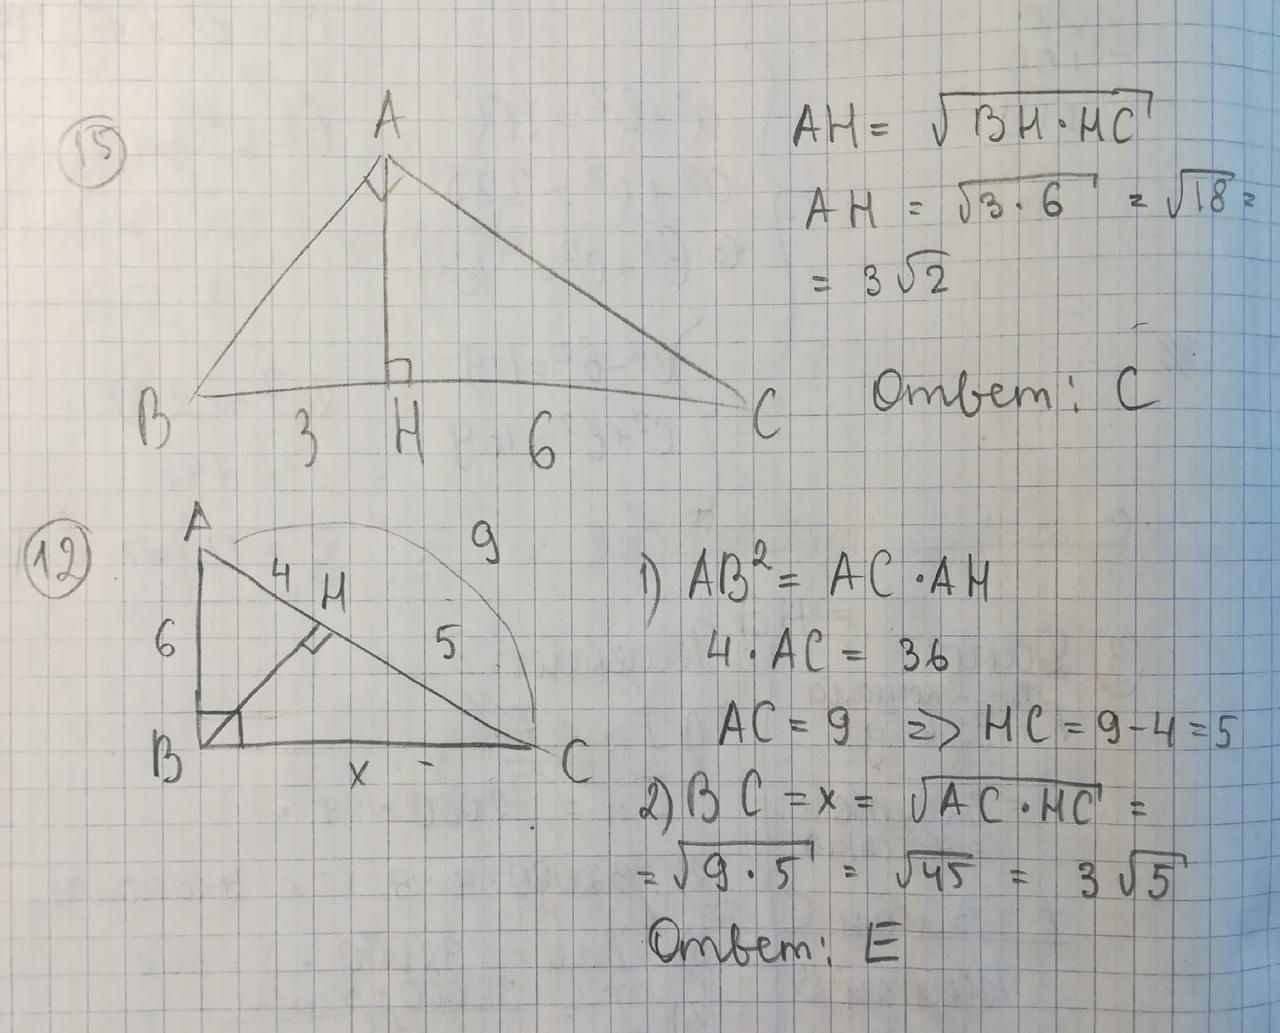 15
A
B
3
H
6
C
AH = √BH · HC
AH = √3 · 6 = √18 =
= 3√2
Ответ: C
12
A
4
H
9
6
5
B
x
C
1) AB² = AC · AH
4 · AC = 36
AC = 9 => HC = 9 - 4 = 5
2) BC = x = √AC · HC =
= √9 · 5 = √45 = 3√5
Ответ: E